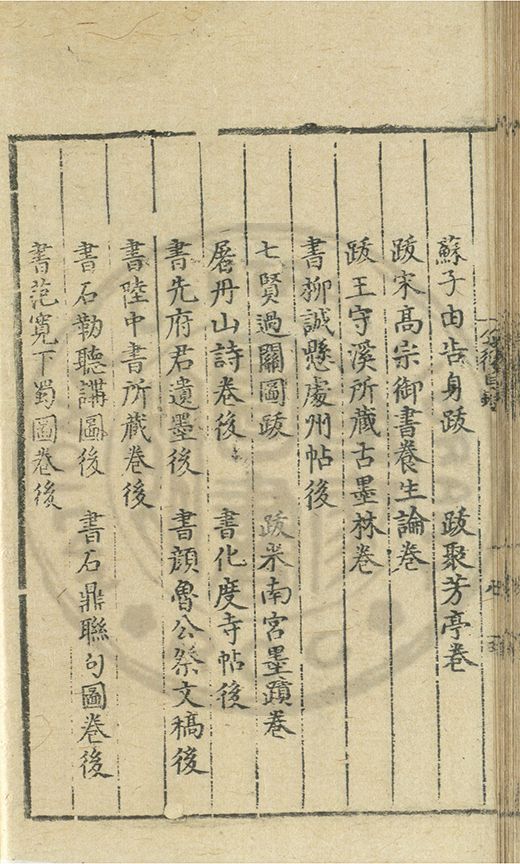 蘇子由告身跋 跋聚芳亭卷
跋宋髙宗御書養生論卷
跋王守溪所藏古墨林卷
書柳誠懸䖏州帖後
七賢過關圖跋 跋米南宮墨蹟卷
屠丹山詩卷後 書化度寺帖後
書先府君遺墨後 書顔魯公祭文稿後
書陸中書所藏卷後
書石勒聽講圖後 書石鼎聯句圖卷後
書范寛下蜀圖卷後